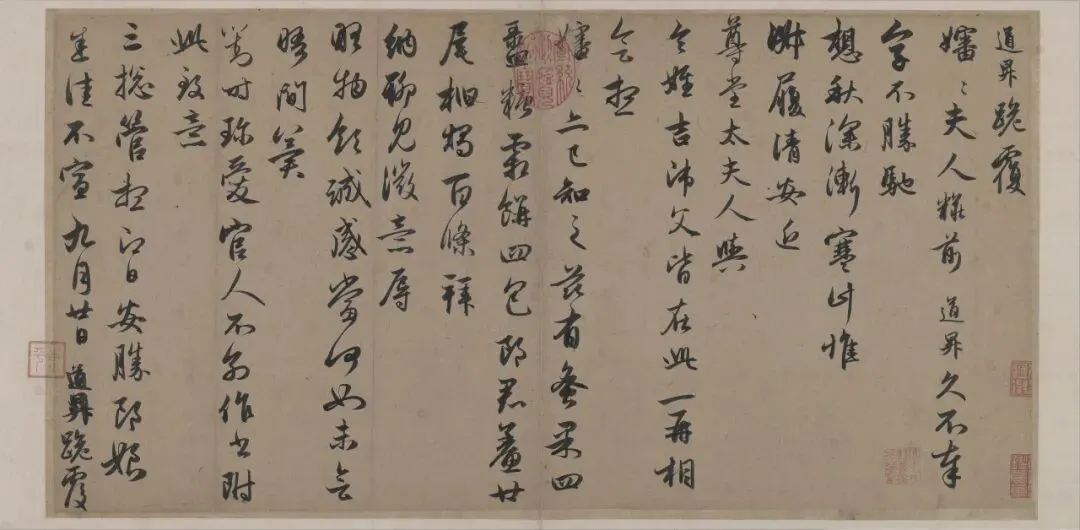 道昇跪覆
嬸〻夫人糚前道昇久不奉
字不勝馳
想秋深漸寒計惟
淑履清安近
尊堂太夫人與
令姪吉師父皆在此一再相
會想
嬸〻亦已知之茲有蜜果四
盝糖霜餅四包郎君鯗廿
尾桕燭百條拜
納聊見微意辱
物領誠感當何如未會
晤間冀
對時珍愛官人不別作書附
此致意
三總管想即日安勝郎娘
悉佳不宣九月廿日道昇跪覆